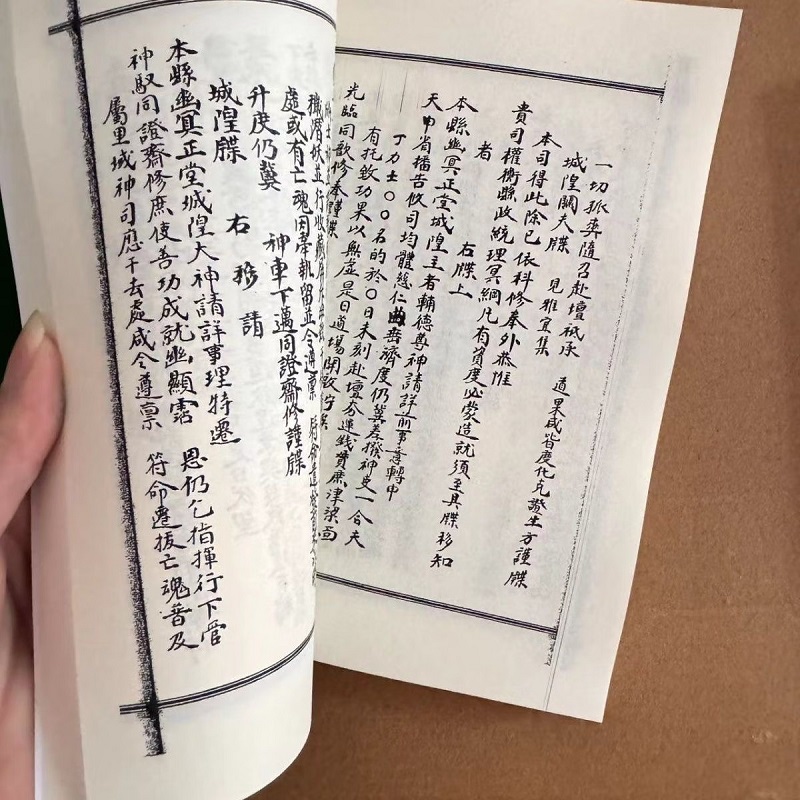 一切孤垂隨召赴壇祗承 道果咸皆度化允發生方謹牒
城隍關夫牒 見雅宜集
本司得此除已依科修奉外恭惟
貴司權衡縣政統理冥綱凡有資度必蒙造就須至具牒移知
者 右牒上
本縣幽冥正堂城隍主者輔德尊神請詳前事意轉申
天曹省播告攸司均體慈仁曲垂濟度仍冀差撥神吏一合夫
丁力士〇〇名的於〇日未刻赴壇夯運錢貲庶津梁
有托致功果以無虛是日道場開啟
光臨同歆修奉謹牒
處或有亡魂因牽執留並令遵稟
神車下邁同證齋修謹牒
升度仍冀
城隍牒 右移請
本縣幽冥正堂城隍大神請詳事理特遷 恩仍乞指揮行下管
神馭同證齋修庶使善功成就幽顯霑 符命遷拔亡魂普及
屬里域神司應干去處咸令遵稟